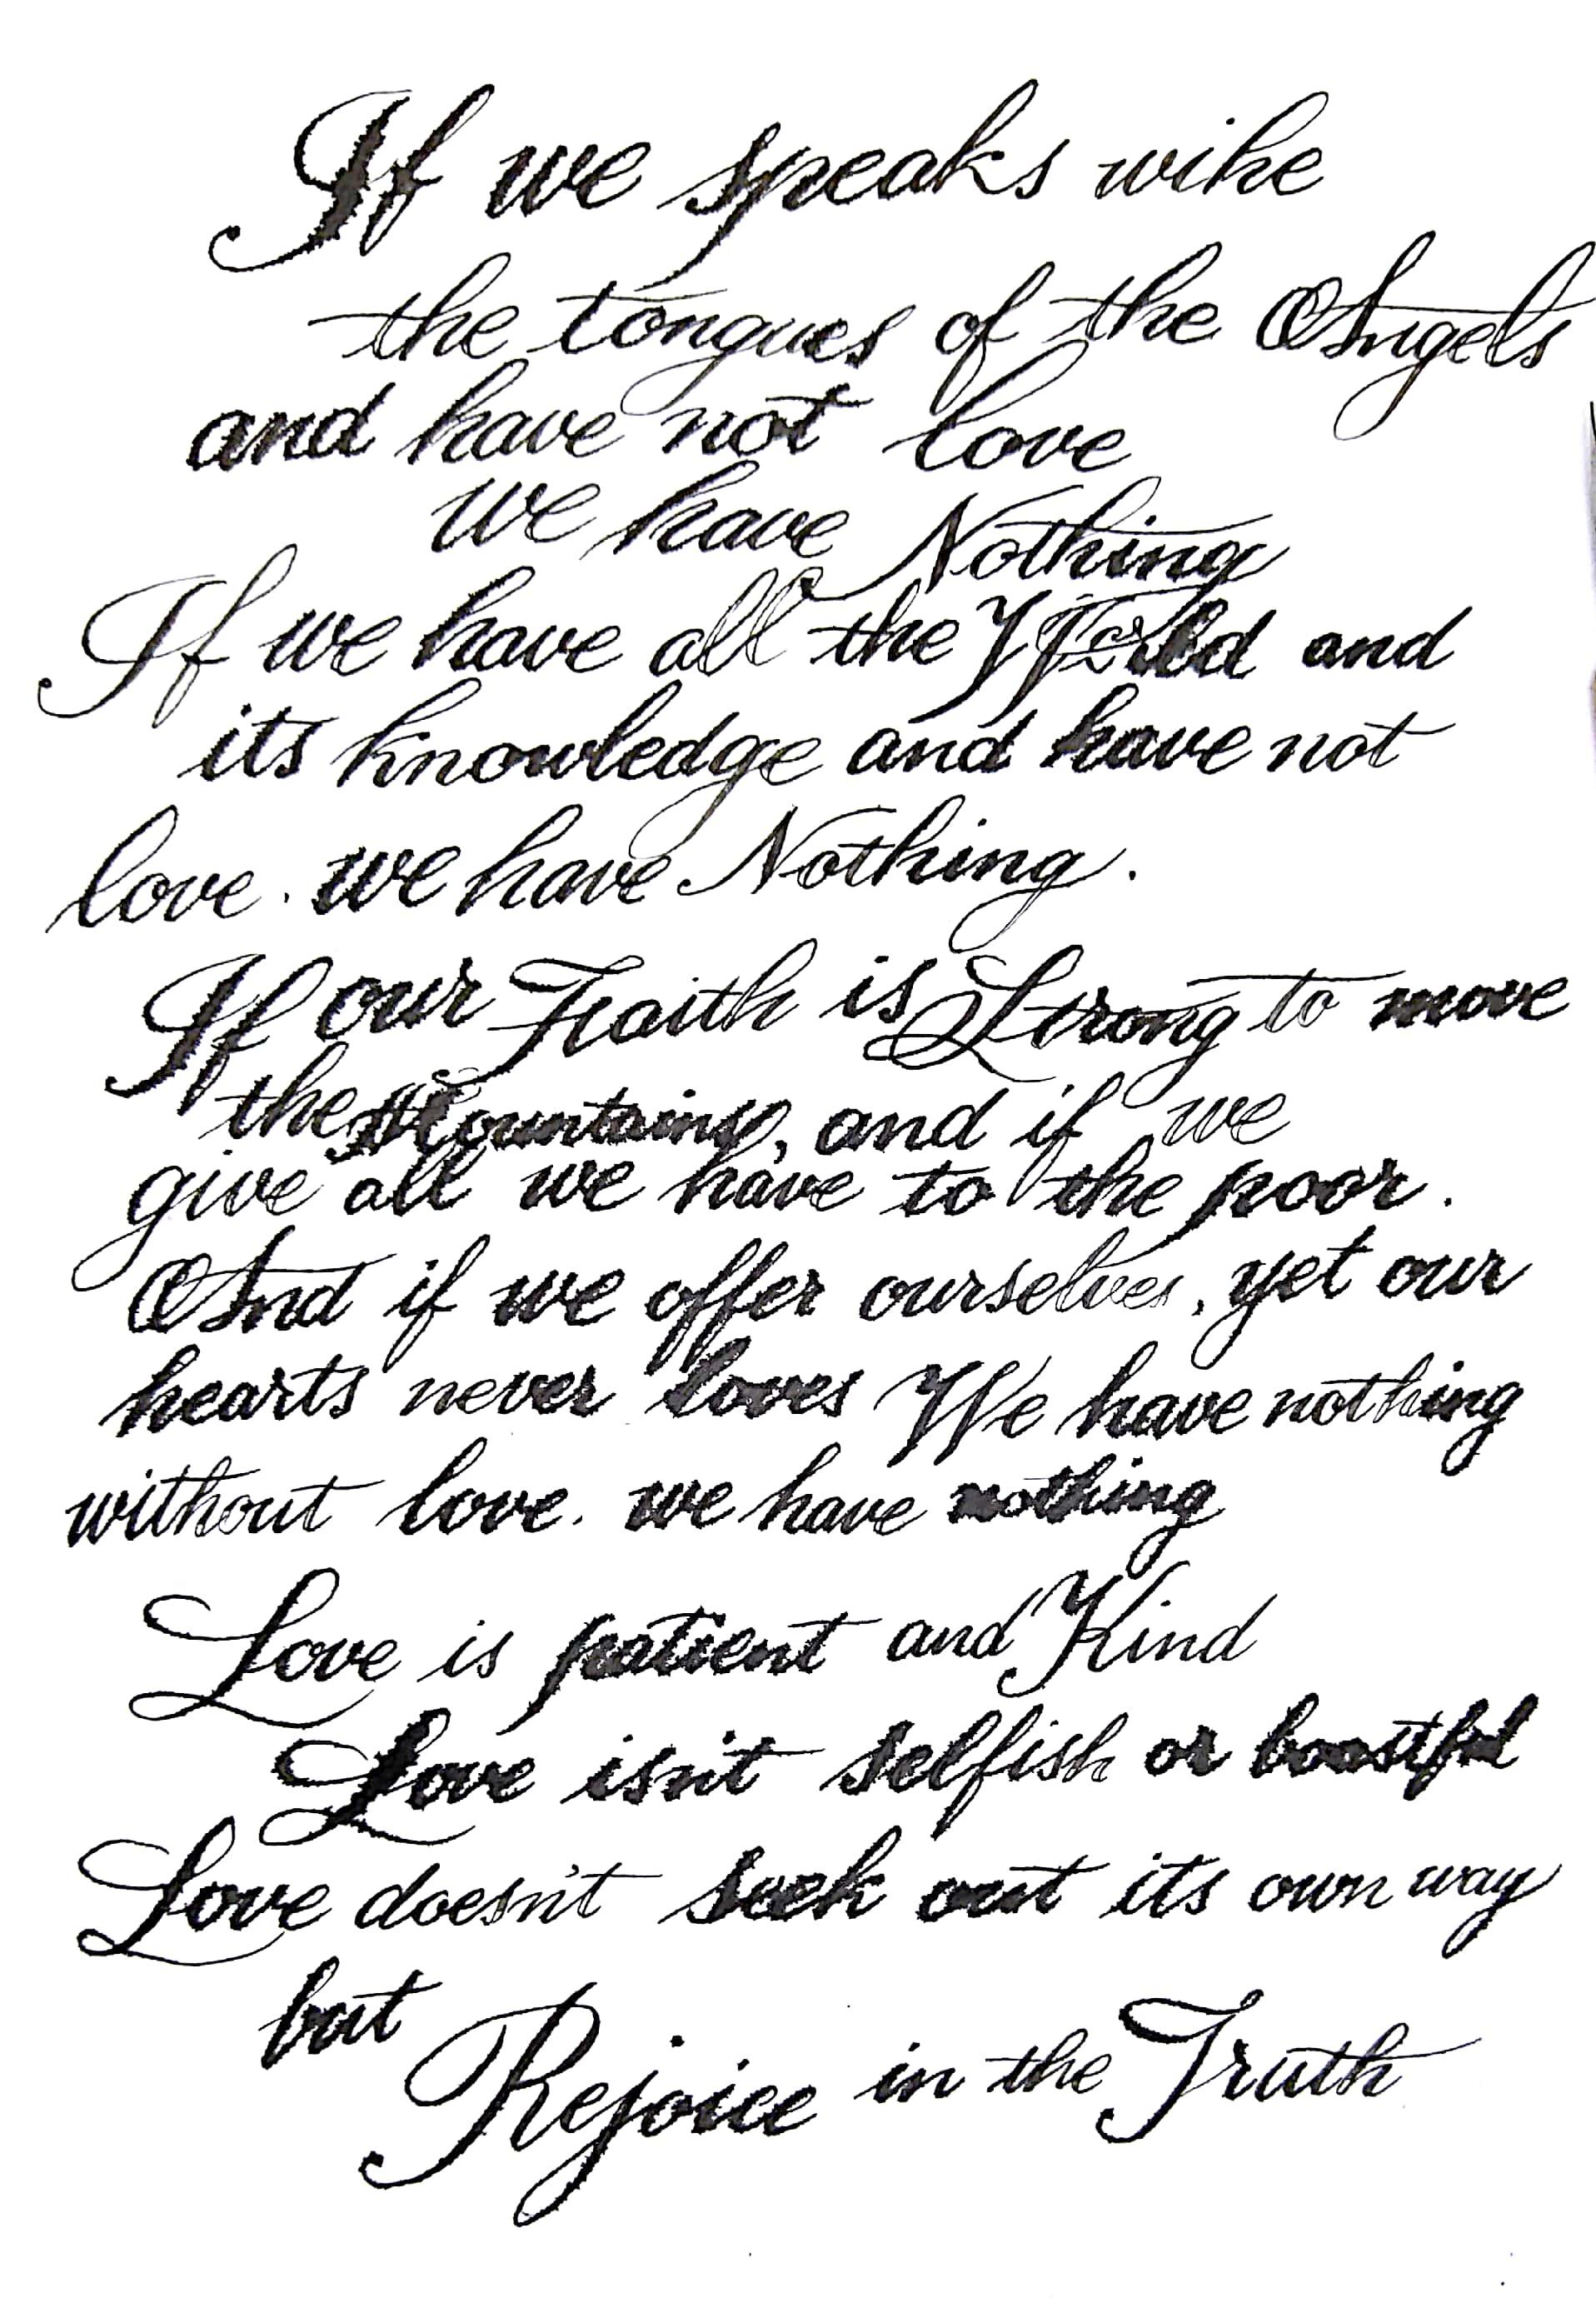 If we speaks wike
the tongues of the Angels
and have not love
we have Nothing
If we have all the World and
its knowledge and have not
love. we have Nothing.
If our Faith is Strong to move
the Mountains, and if we
give all we have to the poor.
And if we offer ourselves, yet our
hearts never loves We have nothing
without love. we have nothing
Love is patient and Kind
Love isn't selfish or boastful
Love doesn't seek out its own way
but
Rejoice in the Truth